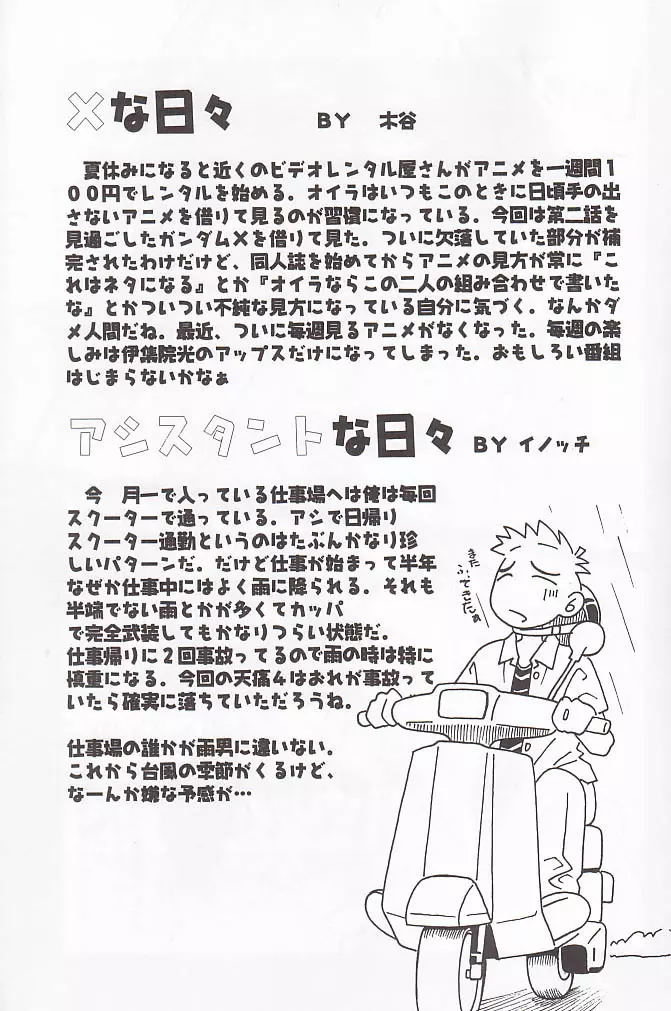 ×な日々 BY 木谷
夏休みになると近くのビデオレンタル屋さんがアニメを一週間1
00円でレンタルを始める。オイラはいつもこのときに日頃手の出
さないアニメを借りて見るのが習慣になっている。今回は第二話を
見過ごしたガンダム×を借りて見た。ついに欠落していた部分が補
完されたわけだけど、同人誌を始めてからアニメの見方が常に『こ
れはネタになる』とか『オイラならこの二人の組み合わせで書いた
な』とかついつい不純な見方になっている自分に気づく。なんかダ
メ人間だね。最近、ついに毎週見るアニメがなくなった。毎週の楽
しみは伊集院光のアップスだけになってしまった。おもしろい番組
はじまらないかなぁ
アシスタントな日々 BY イノッチ
今　月一で入っている仕事場へは俺は毎回
スクーターで通っている。アシで日帰り
スクーター通勤というのはたぶんかなり珍
しいパターンだ。だけど仕事が始まって半年
なぜか仕事中にはよく雨に降られる。それも
半端でない雨とかが多くてカッパ
で完全武装してもかなりつらい状態だ。
仕事帰りに2回事故ってるので雨の時は特に
慎重になる。今回の天痛4はおれが事故って
いたら確実に落ちていただろうね。
仕事場の誰かが雨男に違いない。
これから台風の季節がくるけど、
なーんか嫌な予感が…
また
ふってきたぁ